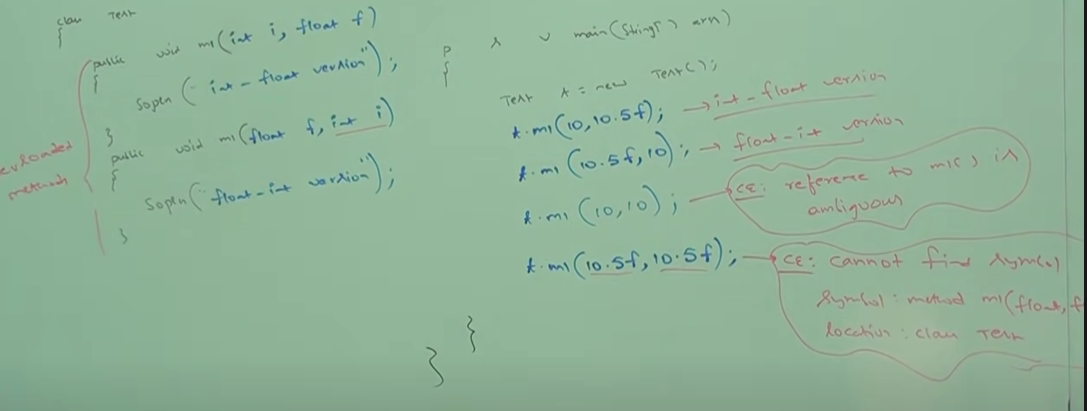 class Test
{
public void m1(int i, float f)
{
Sopln("int-float version");
}
public void m1(float f, int i)
{
Sopln("float-int version");
}
overloaded
methods
p s v main(String[] args)
{
Test t = new Test();
t.m1(10,10.5f); → int-float version
t.m1(10.5f,10); → float-int version
t.m1(10,10); → CE: reference to m1() is
ambiguous
t.m1(10.5f,10.5f); → CE: cannot find symbol
symbol: method m1(float, f
location: class Test
}
}